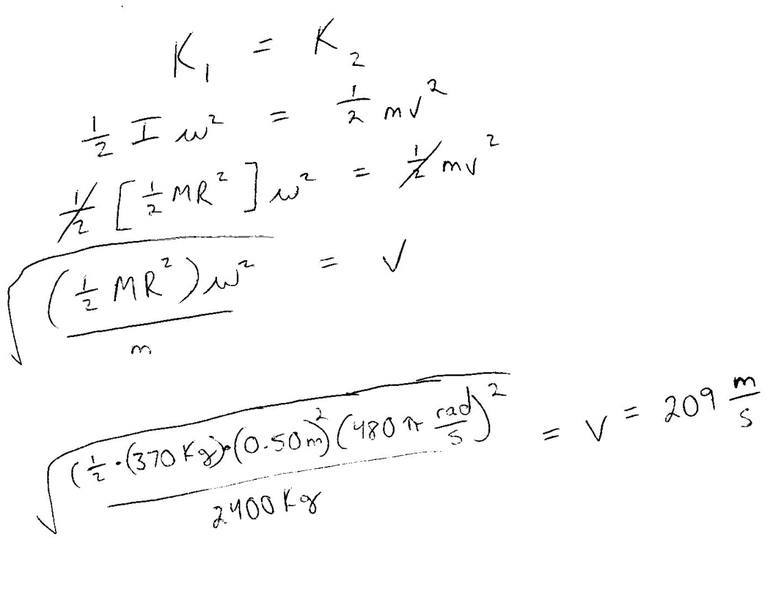 K₁ = K₂
½ I ω² = ½ mv²
½ [½ MR²] ω² = ½ mv²
√((½ MR²)ω² / m) = v
√((½ · (370 Kg) · (0.50m)² (480 π rad/s)² / 2400 Kg) = v = 209 m/s